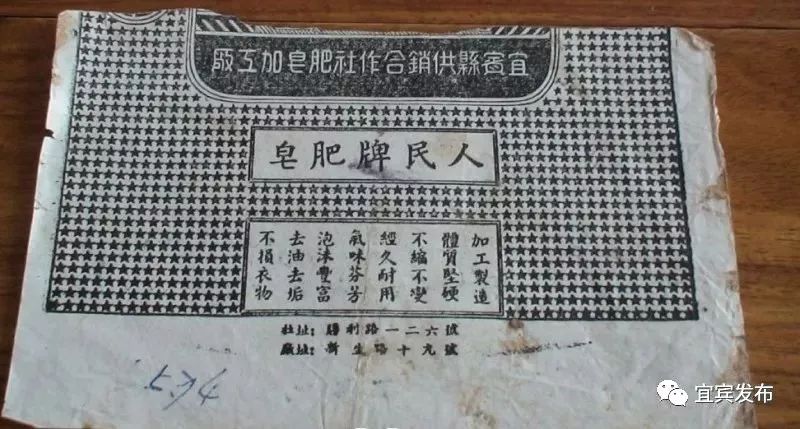 宜賓縣供銷合作社肥皂加工厰
人民牌肥皂
加工製造
體質堅硬
不縮不變
經久耐用
氣味芬芳
泡沫豐富
去油去垢
不損衣物
社址：勝利路一二六號
廠址：新生路十九號
宜宾发布